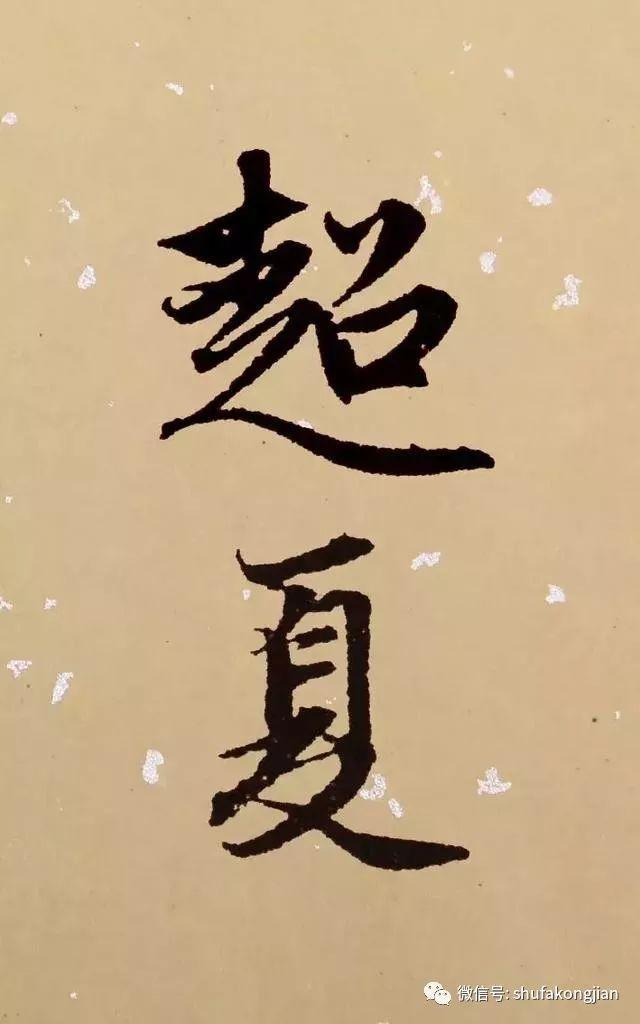 超
夏
微信号: shufakongjian